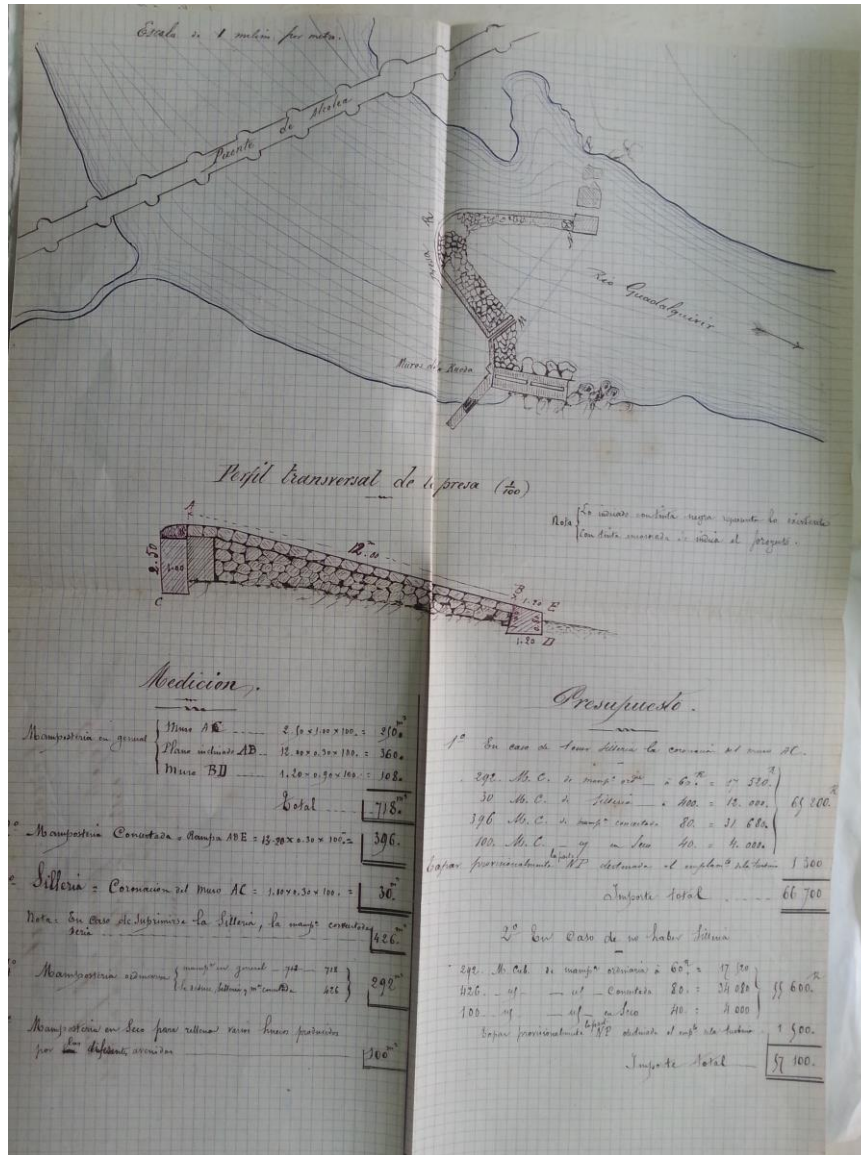 Escala de 1 milim. por metro.
Puente de Alcolea
Presa
R
Rio Guadalquivir
M
Muros de la Rueda
Perfil transversal de la presa (1/100)
Nota { Lo indicado con tinta negra representa lo existente
con tinta encarnada se indica el proyecto.
A
12.00
2.50
1.00
C
B
1.20
E
1.20
D
Medicion.
Mamposteria en general { Muro AC 2.50 x 1.00 x 100. = 250. m³
Plano inclinado AB 12.00 x 0.30 x 100. = 360.
Muro BD 1.20 x 0.90 x 100. = 108.
Total 718. m³
Mamposteria Concertada = Rampa ABE = 13.20 x 0.30 x 100. = 396.
Silleria = Coronación del muro AC = 1.00 x 0.30 x 100. = 30. m³
Nota: En caso de suprimirse la Silleria, la mampª concertada
seria 426. m³
Mamposteria ordinaria { mampª en general 718
Se deduce silleria y mª concertada 426 } 292 m³
Mamposteria en Seco para rellenar varios huecos producidos
por las diferentes avenidas 100 m³
Presupuesto.
1º En caso de ser Silleria la coronación del muro AC.
292. M. C. de mampª ordª à 60. = 17 520.
30 M. C. de Silleria 400. = 12.000.
396 M. C. de mampª concertada 80. = 31 680.
100. M. C. - id en Seco 40. = 4.000.
} 65 200. R
Tapar provisionalmente la parte NP destinada al emplamº de la turbina 1 500
Importe total 66 700
2º En Caso de no haber Silleria
292. M. Cub. de mampª ordinaria à 60. = 17 520
426. - id - id - Concertada 80. = 34 080
100 - id - id - en Seco 40. = 4 000
} 55 600. R
Tapar provisionalmente la parte NP destinada al empº de la turbina 1 500.
Importe total 57 100.